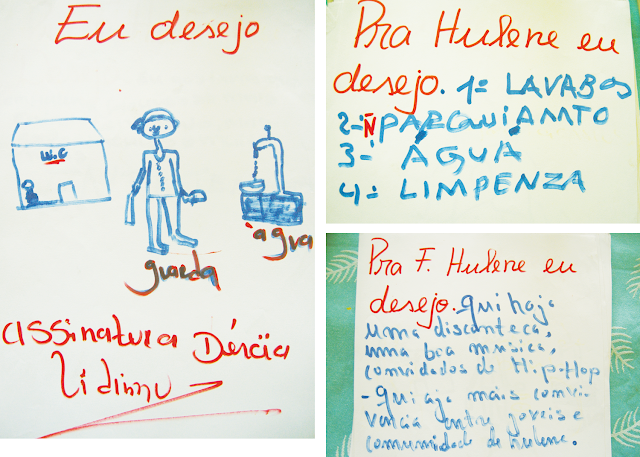 Eu desejo
W.C
água
guarda
assinatura Dércia
Lidimu
Pra Hulene eu
desejo. 1= LAVABOS
2- Ñ PARQUIAMTO
3- ÁGUA
4= LIMPENZA
Pra F. Hulene eu
desejo. Qui haja
uma discanteca,
uma boa musica,
convidados de Hip-Hop
- Qui aja mais convi
vencia entre joveis e
comumidade de hulene.